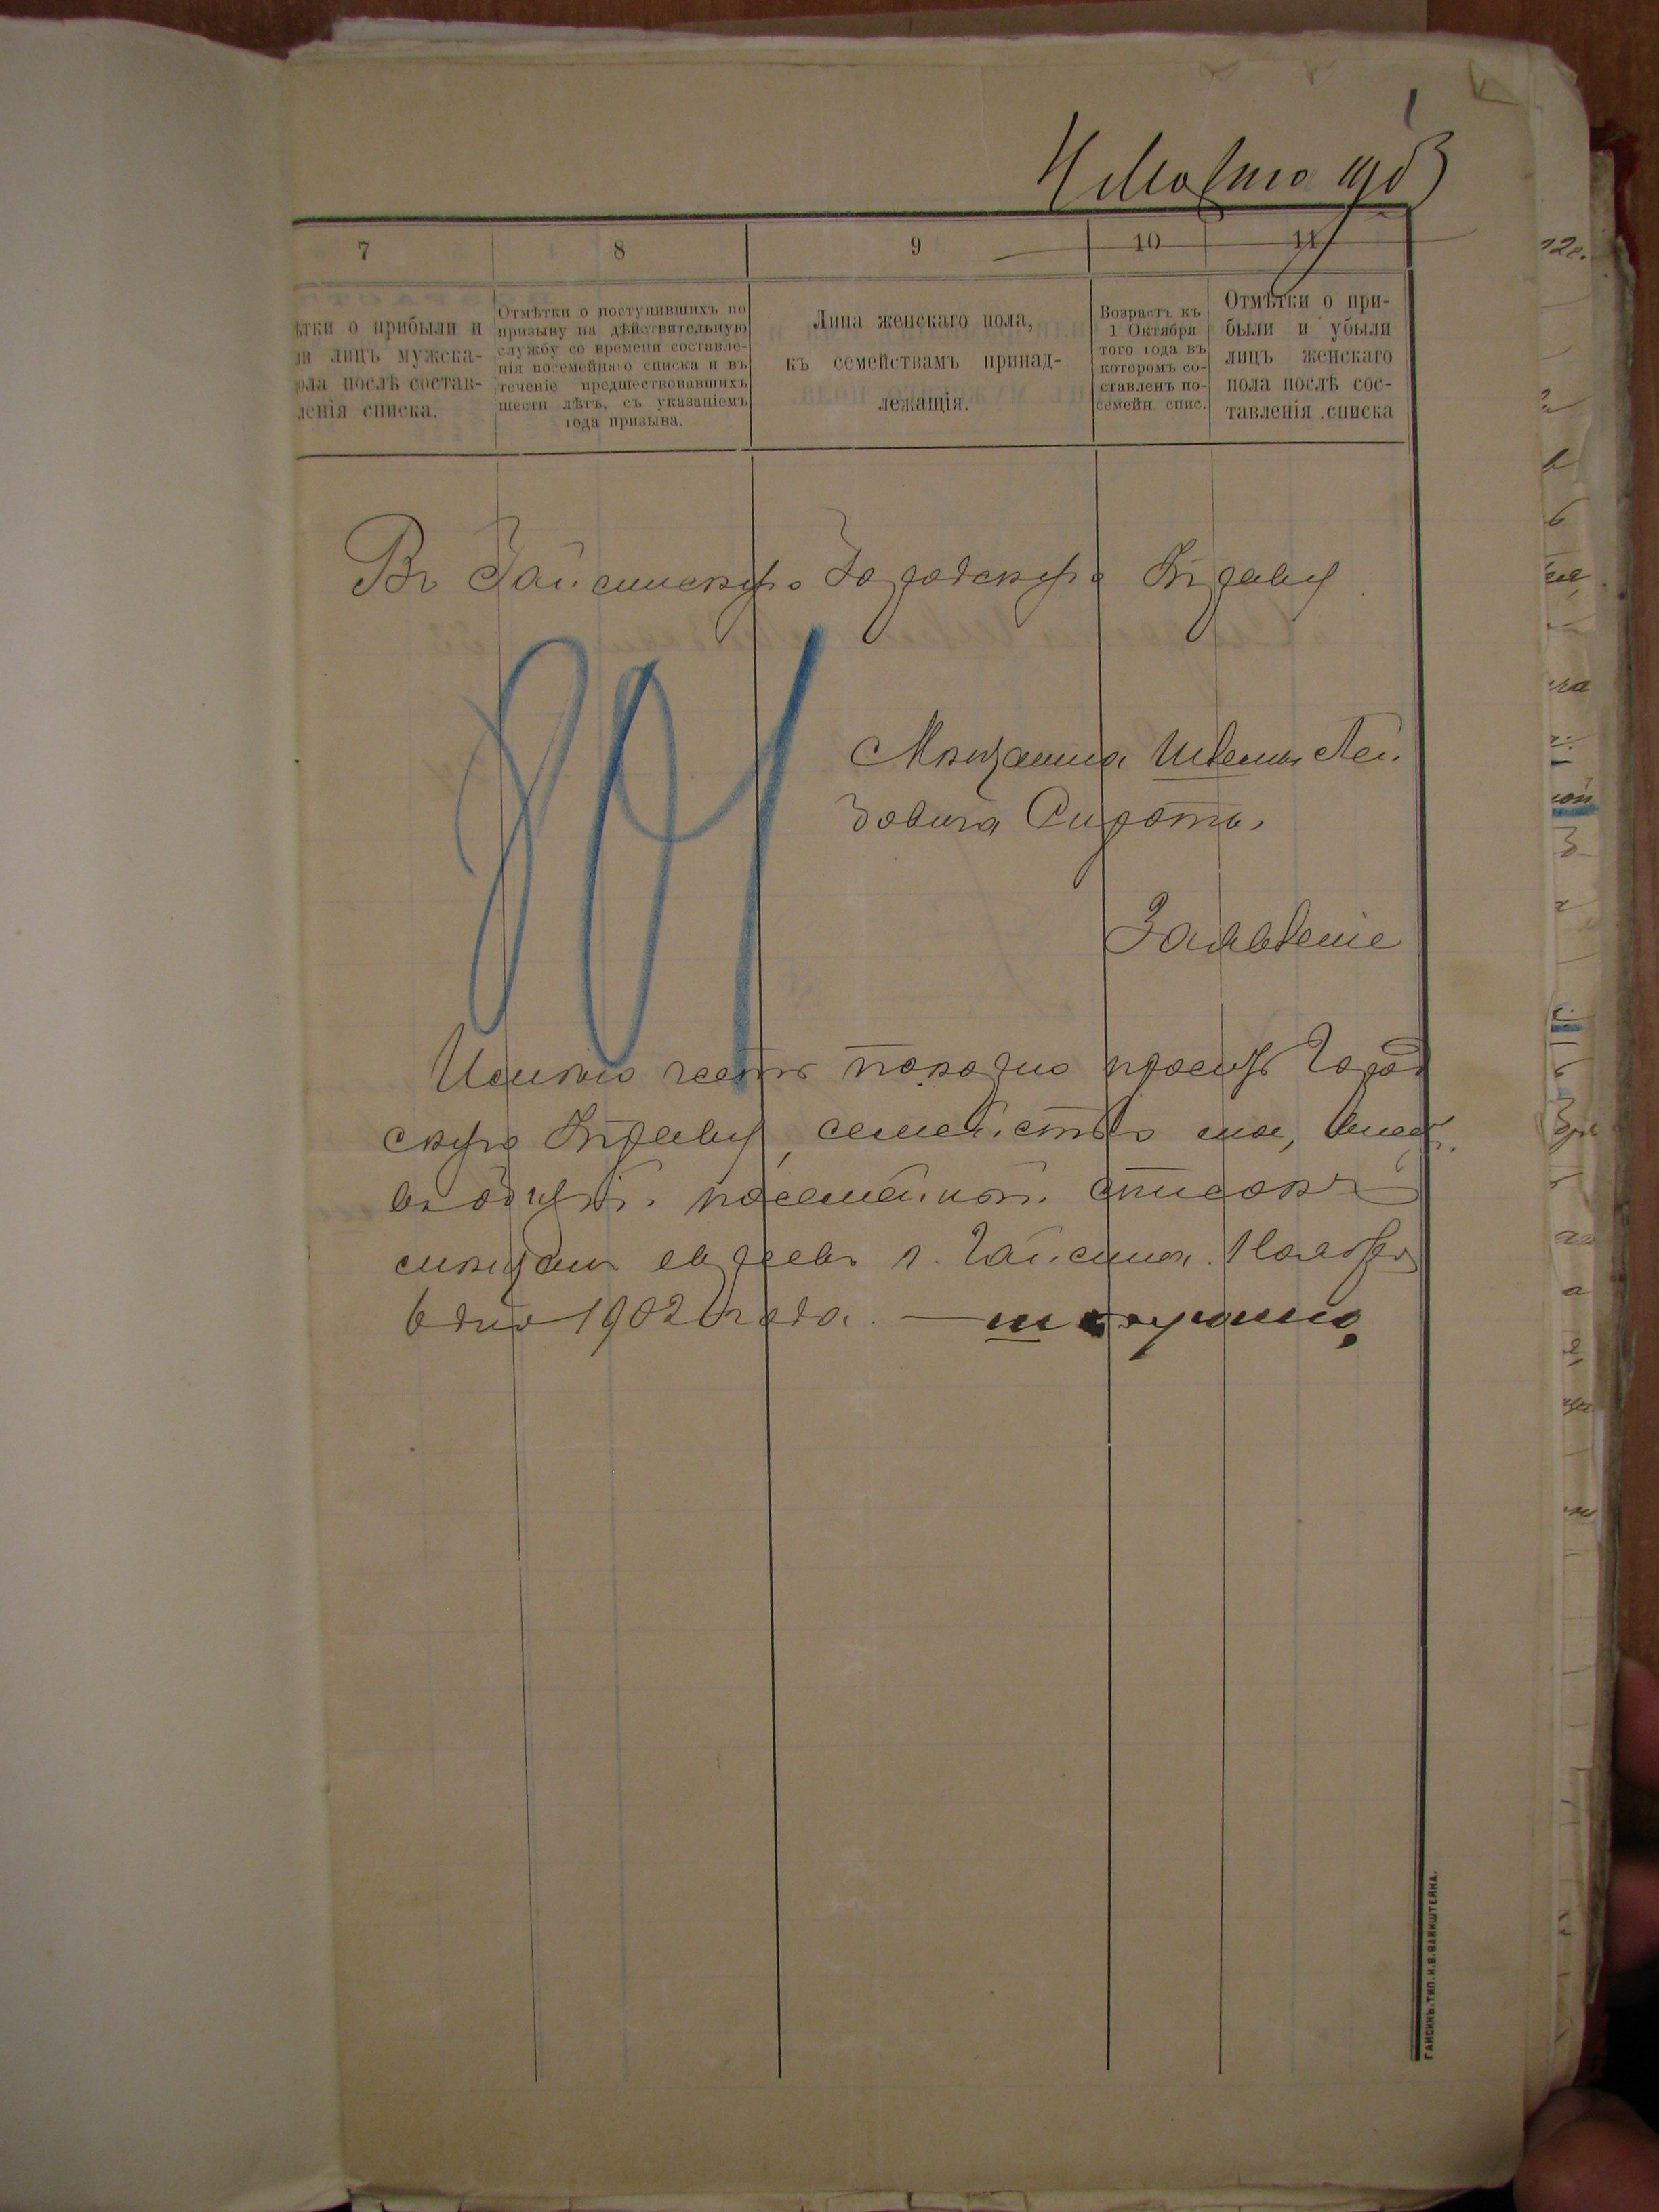 7 8 9 10 11
ѣтки о прибыли и
лицъ мужска-
ола послѣ состав-
ленія списка.
Отмѣтки о поступившихъ по
призыву на дѣйствительную
службу со времени составле-
нія посемейнаго списка и въ
теченіе предшествовавшихъ
шести лѣтъ, съ указаніемъ
года призыва.
Лица женскаго пола,
къ семействамъ принад-
лежащія.
Возрастъ къ
1 Октября
того года въ
которомъ со-
ставленъ по-
семейн. спис.
Отмѣтки о при-
были и убыли
лицъ женскаго
пола послѣ сос-
тавленія списка
Въ Гайсинскую Городскую Управу
Мѣщанина Лей
зовича Сироты
Заявленіе
Имѣю честь покорно просить Город
скую Управу, семейство мое, внест.
въ общій посемейный списокъ
мѣщанъ евреевъ г. Гайсина. Ноября
6 дня 1902 года.
ГАЙСИНЪ, ТИП. И. В. ВАЙНШТЕЙНА.